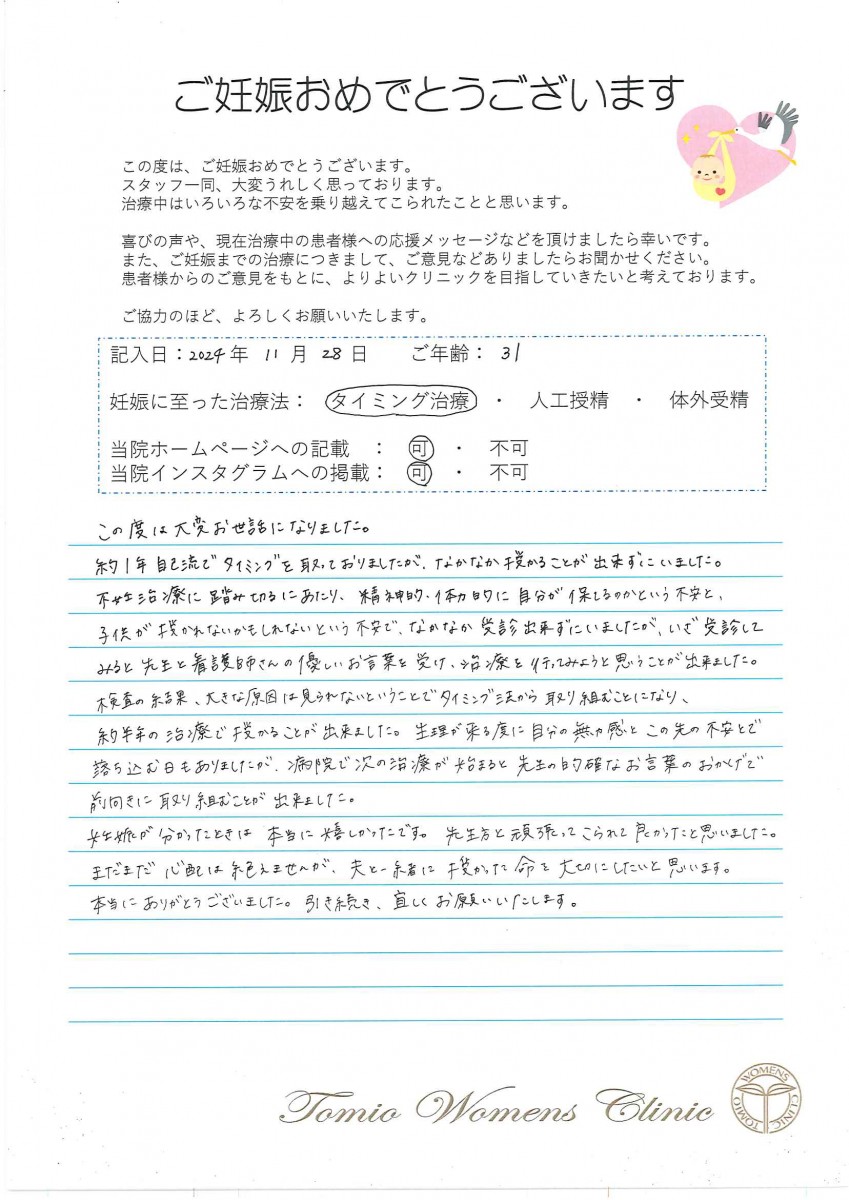 ご妊娠おめでとうございます
この度は、ご妊娠おめでとうございます。
スタッフ一同、大変うれしく思っております。
治療中はいろいろな不安を乗り越えてこられたことと思います。
喜びの声や、現在治療中の患者様への応援メッセージなどを頂けましたら幸いです。
また、ご妊娠までの治療につきまして、ご意見などありましたらお聞かせください。
患者様からのご意見をもとに、よりよいクリニックを目指していきたいと考えております。
ご協力のほど、よろしくお願いいたします。
記入日：2024 年 11 月 28 日　ご年齢： 31
妊娠に至った治療法： タイミング治療 ・ 人工授精 ・ 体外受精
当院ホームページへの記載 ： 可 ・ 不可
当院インスタグラムへの掲載： 可 ・ 不可
この度は大変お世話になりました。
約1年自己流でタイミングを取っておりましたが、なかなか授かることが出来ずにいました。
不妊治療に踏み切るにあたり、精神的・体力的に自分が保てるのかという不安と、
子供が授かれないかもしれないという不安で、なかなか受診出来ずにいましたが、いざ受診して
みると先生と看護師さんの優しいお言葉を受け、治療を行ってみようと思うことが出来ました。
検査の結果、大きな原因は見られないということでタイミング法から取り組むことになり、
約半年の治療で授かることが出来ました。生理が来る度に自分の無力感とこの先の不安とで
落ち込む日もありましたが、病院で次の治療が始まると先生の的確なお言葉のおかげで
前向きに取り組むことが出来ました。
妊娠が分かったときは本当に嬉しかったです。先生方と頑張ってこられて良かったと思いました。
まだまだ心配は絶えませんが、夫と一緒に授かった命を大切にしたいと思います。
本当にありがとうございました。引き続き、宜しくお願いいたします。
Tomio Womens Clinic
WOMENS CLINIC TOMIO